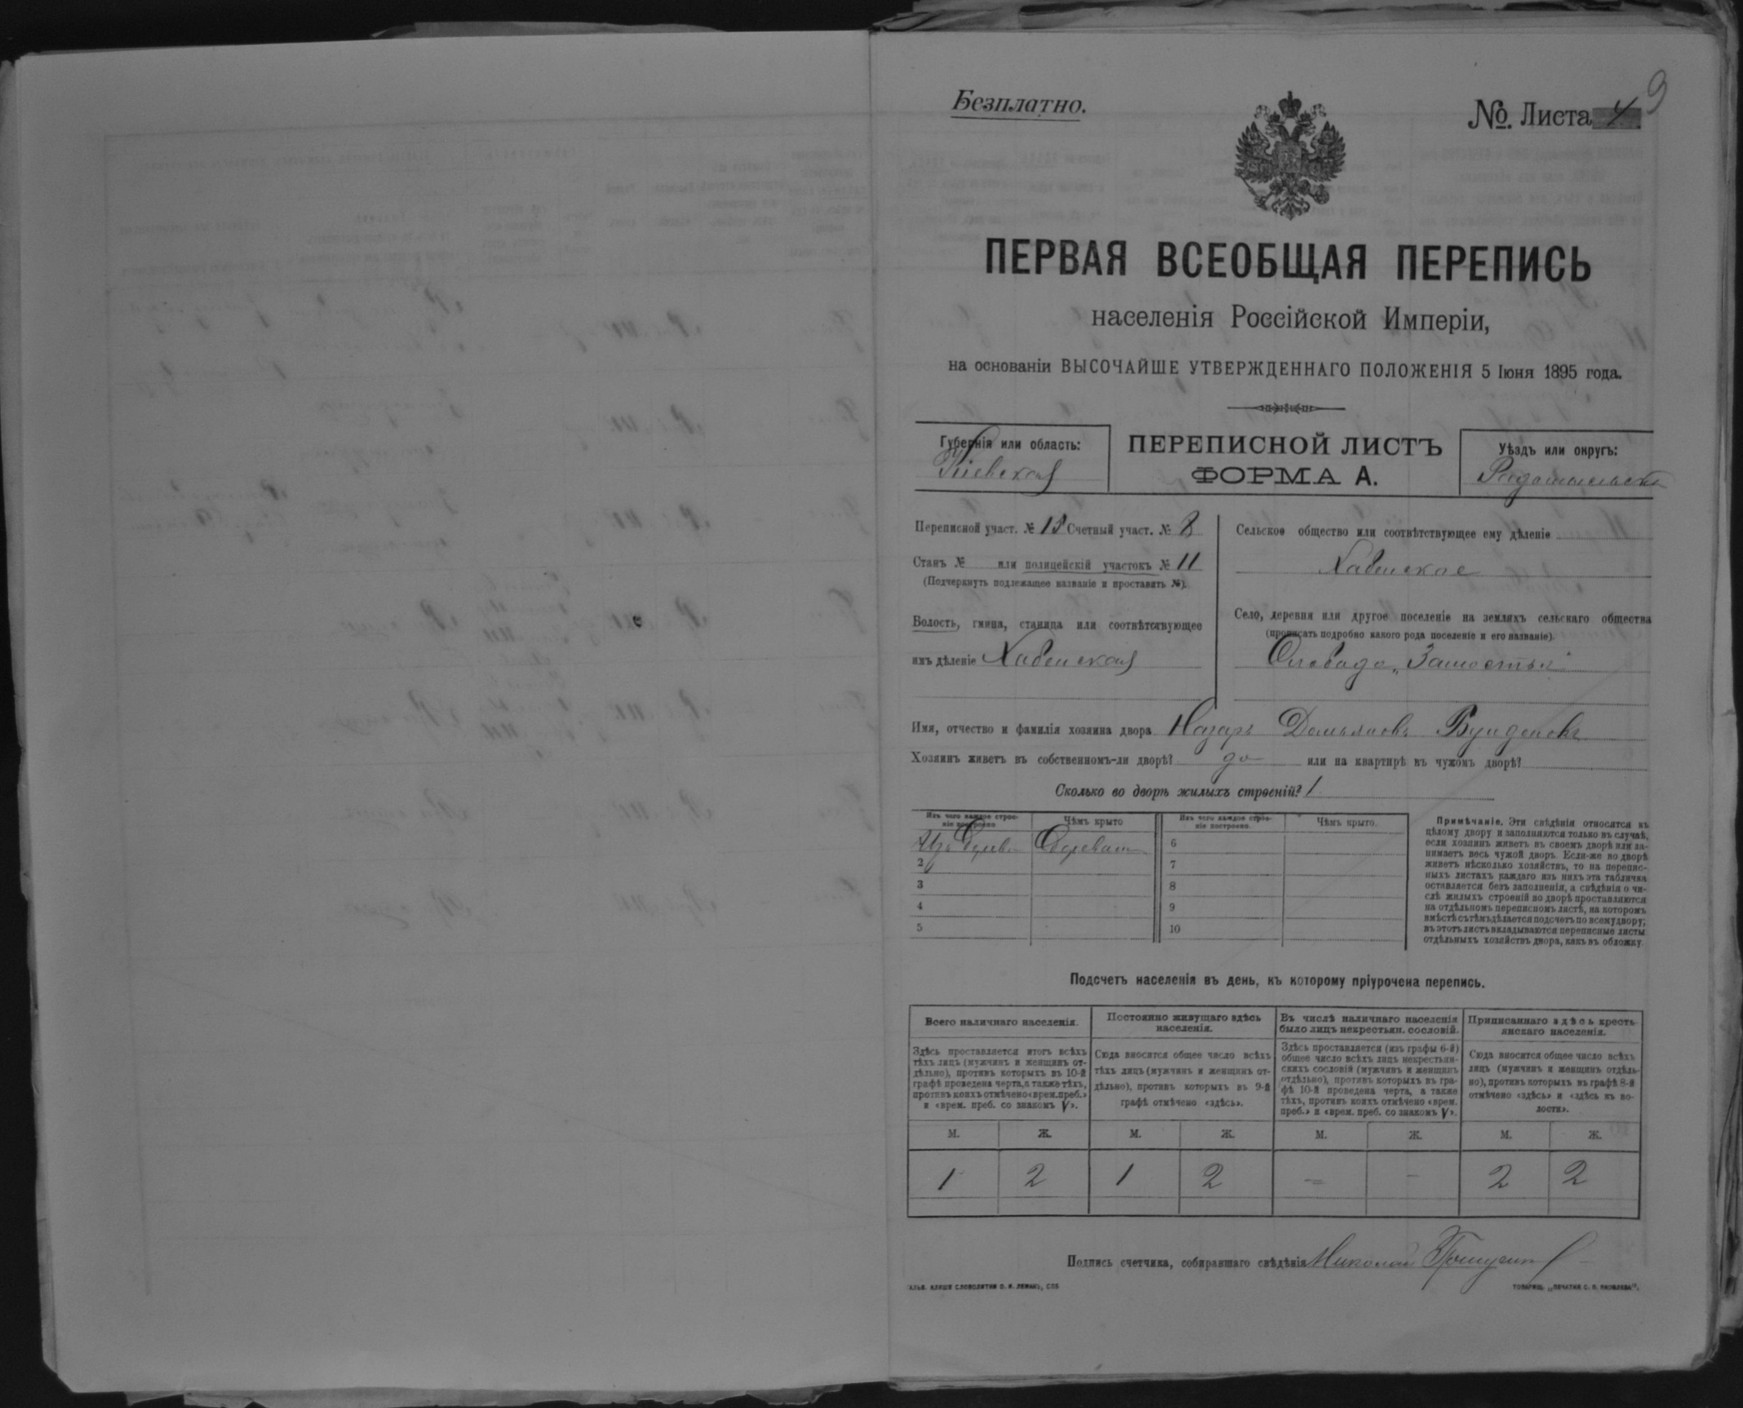 Безплатно.
№ Листа 4
9
ПЕРВАЯ ВСЕОБЩАЯ ПЕРЕПИСЬ
населенія Россійской Имперіи,
на основаніи ВЫСОЧАЙШЕ УТВЕРЖДЕННАГО ПОЛОЖЕНІЯ 5 Іюня 1895 года.
Губернія или область:
Кіевская
ПЕРЕПИСНОЙ ЛИСТЪ
ФОРМА А.
Уѣздъ или округъ:
Переписной участ. № 13 Счетный участ. № 8
Станъ № или полицейскій участокъ № 11
(Подчеркнуть подлежащее названіе и проставить №).
Волость, гмина, станица или соотвѣтствующее
имъ дѣленіе Хабенская
Сельское общество или соотвѣтствующее ему дѣленіе
Хабенское
Село, деревня или другое поселеніе на земляхъ сельскаго общества
(прописать подробно какого рода поселеніе и его названіе).
Слобода „Замостье"
Имя, отчество и фамилія хозяина двора Назаръ Демьяновъ
Хозяинъ живетъ въ собственномъ-ли дворѣ? да или на квартирѣ въ чужомъ дворѣ?
Сколько во дворѣ жилыхъ строеній? 1
Изъ чего каждое строеніе построено.
Чѣмъ крыто
Изъ чего каждое строеніе построено.
Чѣмъ крыто.
Изъ дерев.
2
3
4
5
6
7
8
9
10
Примѣчаніе. Эти свѣдѣнія относятся къ
цѣлому двору и заполняются только въ случаѣ,
если хозяинъ живетъ въ своемъ дворѣ или за-
нимаетъ весь чужой дворъ. Если-же во дворѣ
живетъ нѣсколько хозяйствъ, то на перепис-
ныхъ листахъ каждаго изъ нихъ эта табличка
оставляется безъ заполненія, а свѣдѣнія о чи-
слѣ жилыхъ строеній во дворѣ проставляются
на отдѣльномъ переписномъ листѣ, на которомъ
вмѣстѣ съ тѣмъ дѣлается подсчетъ по всему двору;
въ этотъ листъ вкладываются переписные листы
отдѣльныхъ хозяйствъ двора, какъ въ обложку.
Подсчетъ населенія въ день, къ которому пріурочена перепись.
Всего наличнаго населенія.
Здѣсь проставляется итогъ всѣхъ
тѣхъ лицъ (мужчинъ и женщинъ от-
дѣльно), противъ которыхъ въ 10-й
графѣ проведена черта, а также тѣхъ,
противъ коихъ отмѣчено «врем. преб.»
и «врем. преб. со знакомъ V».
Постоянно живущаго здѣсь
населенія.
Сюда вносится общее число всѣхъ
тѣхъ лицъ (мужчинъ и женщинъ от-
дѣльно), противъ которыхъ въ 9-й
графѣ отмѣчено «здѣсь».
Въ числѣ наличнаго населенія
было лицъ некрестьян. сословій.
Здѣсь проставляется (изъ графы 6-й)
общее число всѣхъ лицъ некрестьян-
скихъ сословій (мужчинъ и женщинъ
отдѣльно), противъ которыхъ въ гра-
фѣ 10-й проведена черта, а также
тѣхъ, противъ коихъ отмѣчено «врем.
преб.» и «врем. преб. со знакомъ V».
Приписаннаго здѣсь кресть-
янскаго населенія.
Сюда вносится общее число всѣхъ
лицъ (мужчинъ и женщинъ отдѣль-
но), противъ которыхъ въ графѣ 8-й
отмѣчено «здѣсь» и «здѣсь въ во-
лости».
М. Ж. М. Ж. М. Ж. М. Ж.
1 2 1 2 – – 2 2
Подпись счетчика, собиравшаго свѣдѣнія Николай
ТОВАРИЩ. „ПЕЧАТНЯ С. П. ЯКОВЛЕВА".